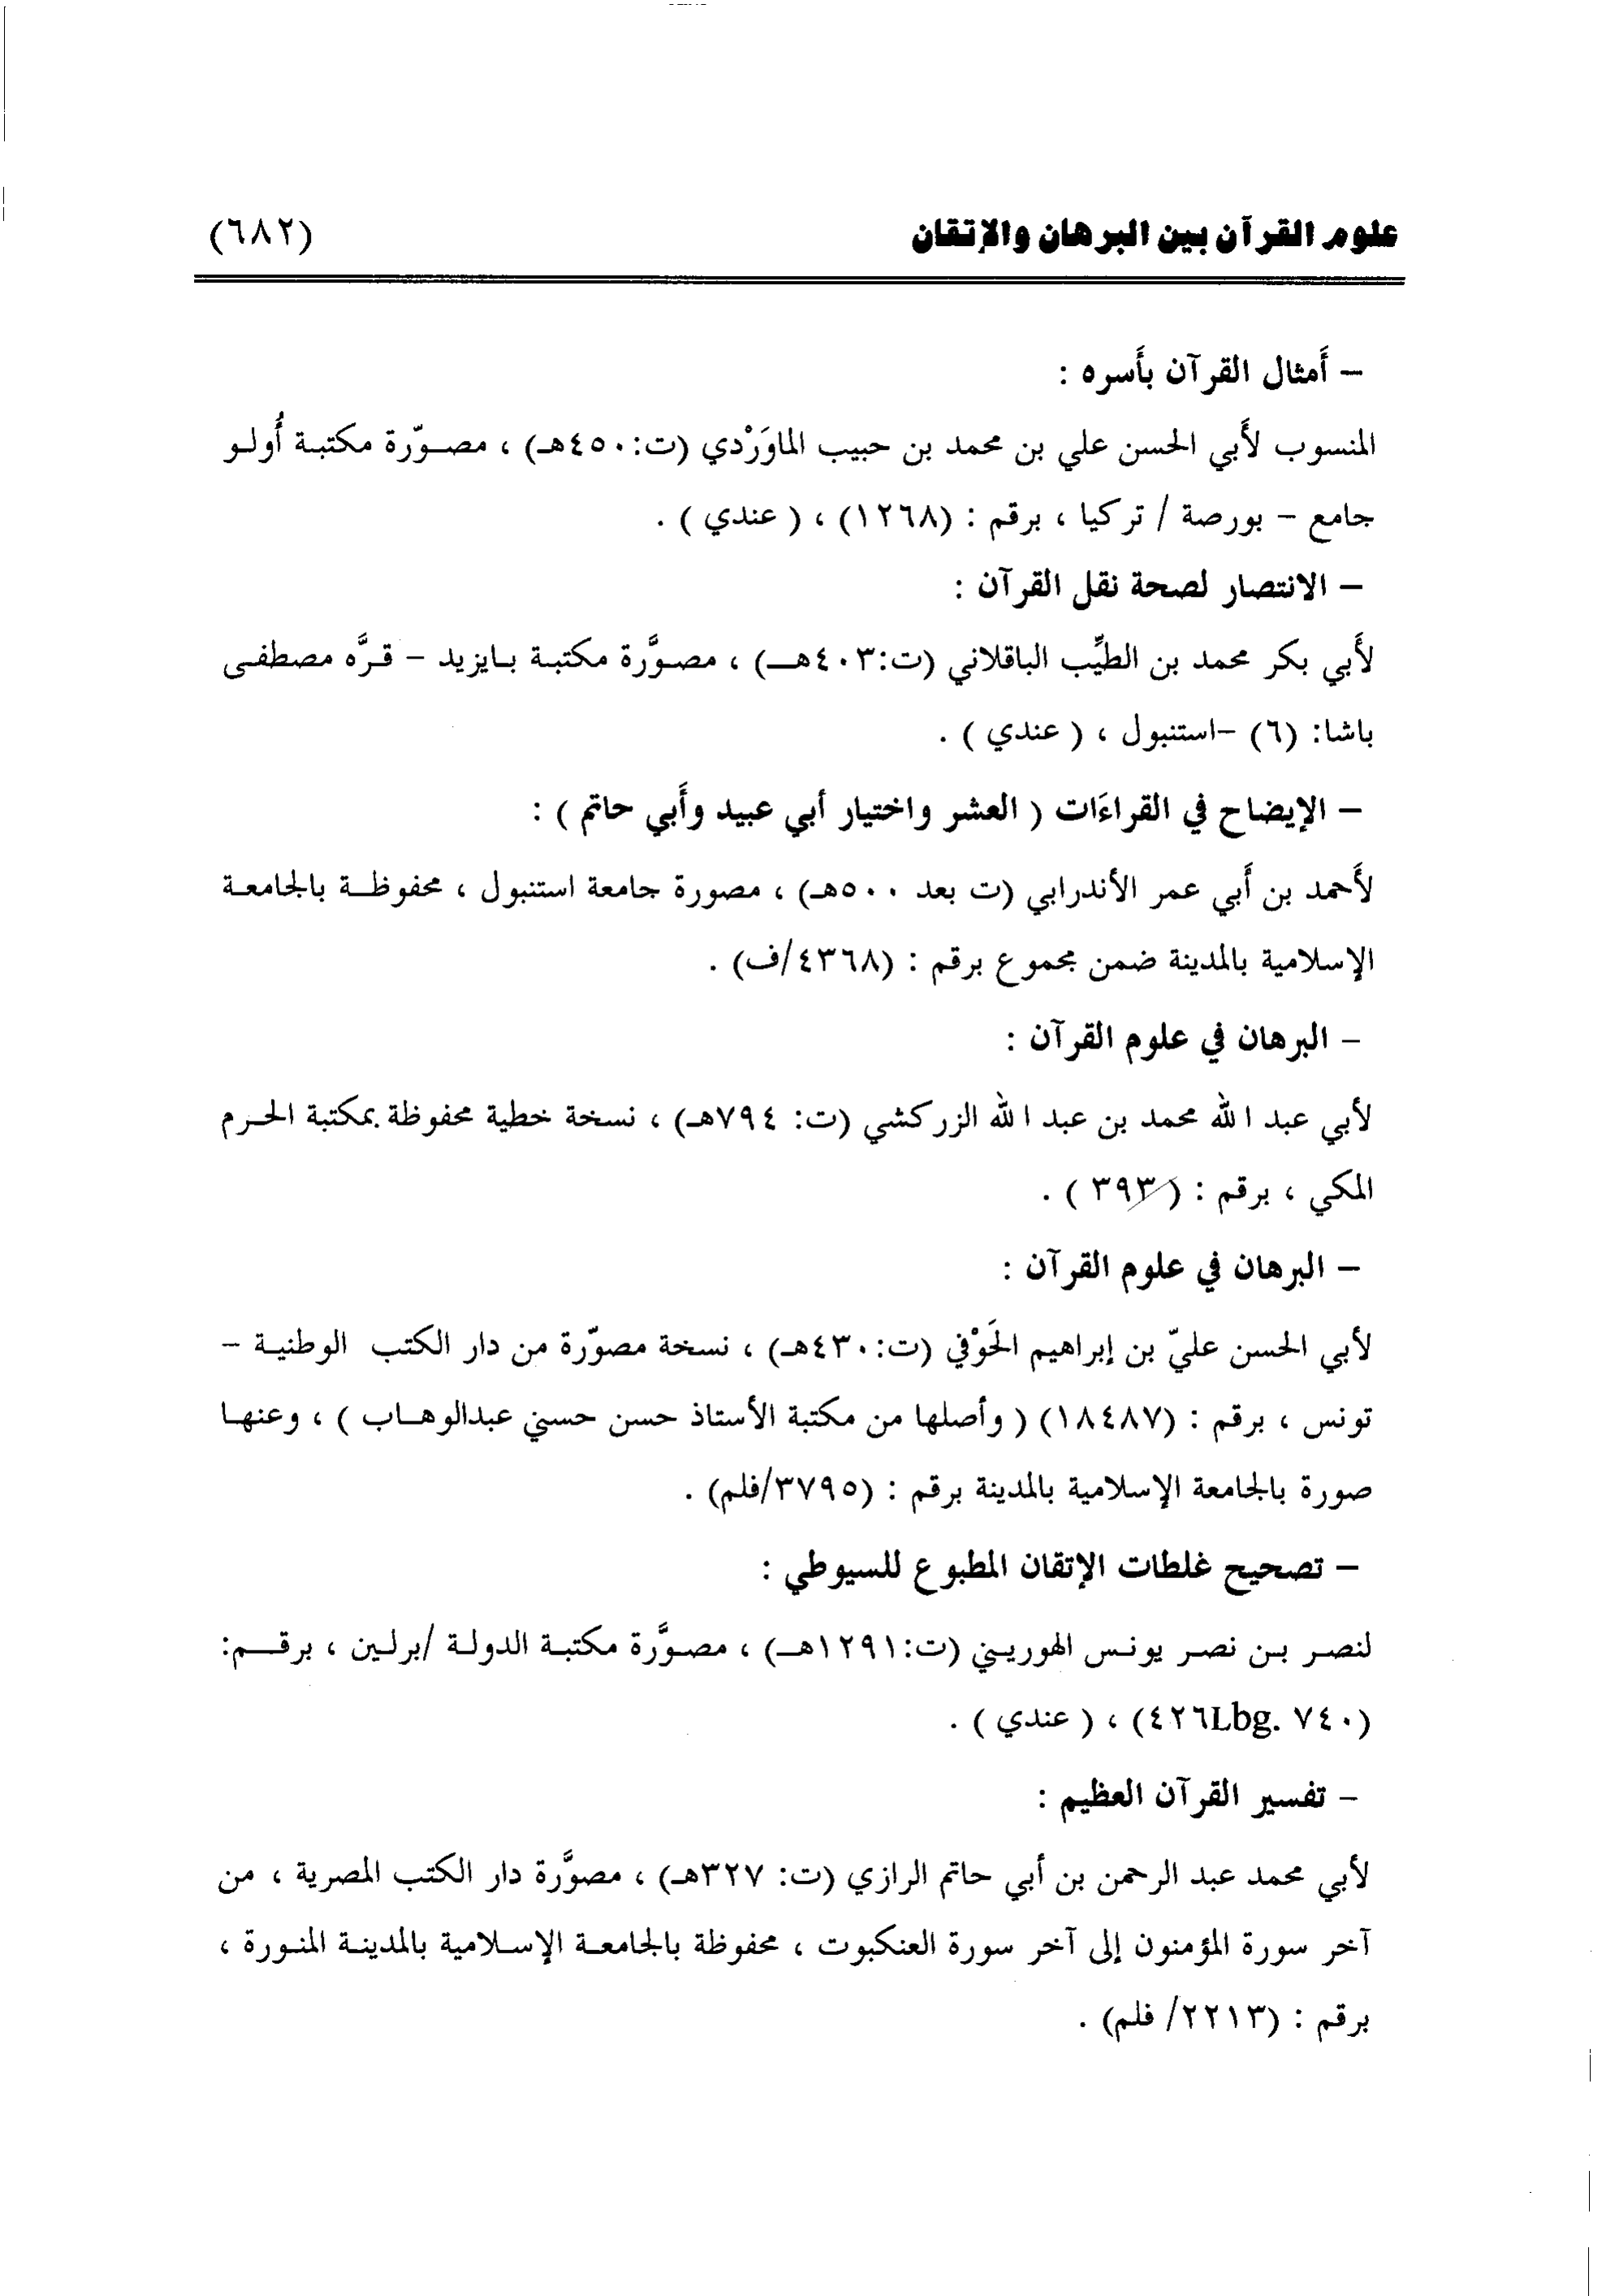 علوم القرآن بين البرهان والإتقان (٦٨٢)
– أَمثال القرآن بأَسره :
المنسوب لأَبي الحسن علي بن محمد بن حبيب الماوَرْدي (ت:٤٥٠هـ) ، مصوّرة مكتبة أُولو
جامع – بورصة / تركيا ، برقم : (١٢٦٨) ، ( عندي ) .
– الانتصار لصحة نقل القرآن :
لأَبي بكر محمد بن الطيِّب الباقلاني (ت:٤٠٣هـ) ، مصوَّرة مكتبة بايزيد – قرَّه مصطفى
باشا: (٦) –استنبول ، ( عندي ) .
– الإيضاح في القراءَات ( العشر واختيار أبي عبيد وأَبي حاتم ) :
لأَحمد بن أَبي عمر الأندرابي (ت بعد ٥٠٠هـ) ، مصورة جامعة استنبول ، محفوظة بالجامعة
الإسلامية بالمدينة ضمن مجموع برقم : (٤٣٦٨/ف) .
– البرهان في علوم القرآن :
لأبي عبد الله محمد بن عبد الله الزركشي (ت: ٧٩٤هـ) ، نسخة خطية محفوظة بمكتبة الحرم
المكي ، برقم : (٣٩٣ ) .
– البرهان في علوم القرآن :
لأبي الحسن عليّ بن إبراهيم الحَوْفي (ت:٤٣٠هـ) ، نسخة مصوّرة من دار الكتب الوطنية –
تونس ، برقم : (١٨٤٨٧) ( وأصلها من مكتبة الأستاذ حسن حسني عبدالوهاب ) ، وعنها
صورة بالجامعة الإسلامية بالمدينة برقم : (٣٧٩٥/فلم) .
– تصحيح غلطات الإتقان المطبوع للسيوطي :
لنصر بن نصر يونس الهوريني (ت:١٢٩١هـ) ، مصوَّرة مكتبة الدولة /برلين ، برقم:
(٤٢٦Lbg. ٧٤٠) ، ( عندي ) .
– تفسير القرآن العظيم :
لأبي محمد عبد الرحمن بن أبي حاتم الرازي (ت: ٣٢٧هـ) ، مصوَّرة دار الكتب المصرية ، من
آخر سورة المؤمنون إلى آخر سورة العنكبوت ، محفوظة بالجامعة الإسلامية بالمدينة المنورة ،
برقم : (٢٢١٣/ فلم) .